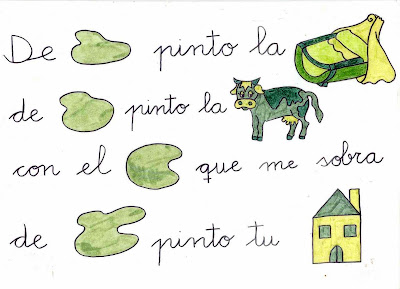 De pinto la
de pinto la
con el que me sobra
de pinto tu